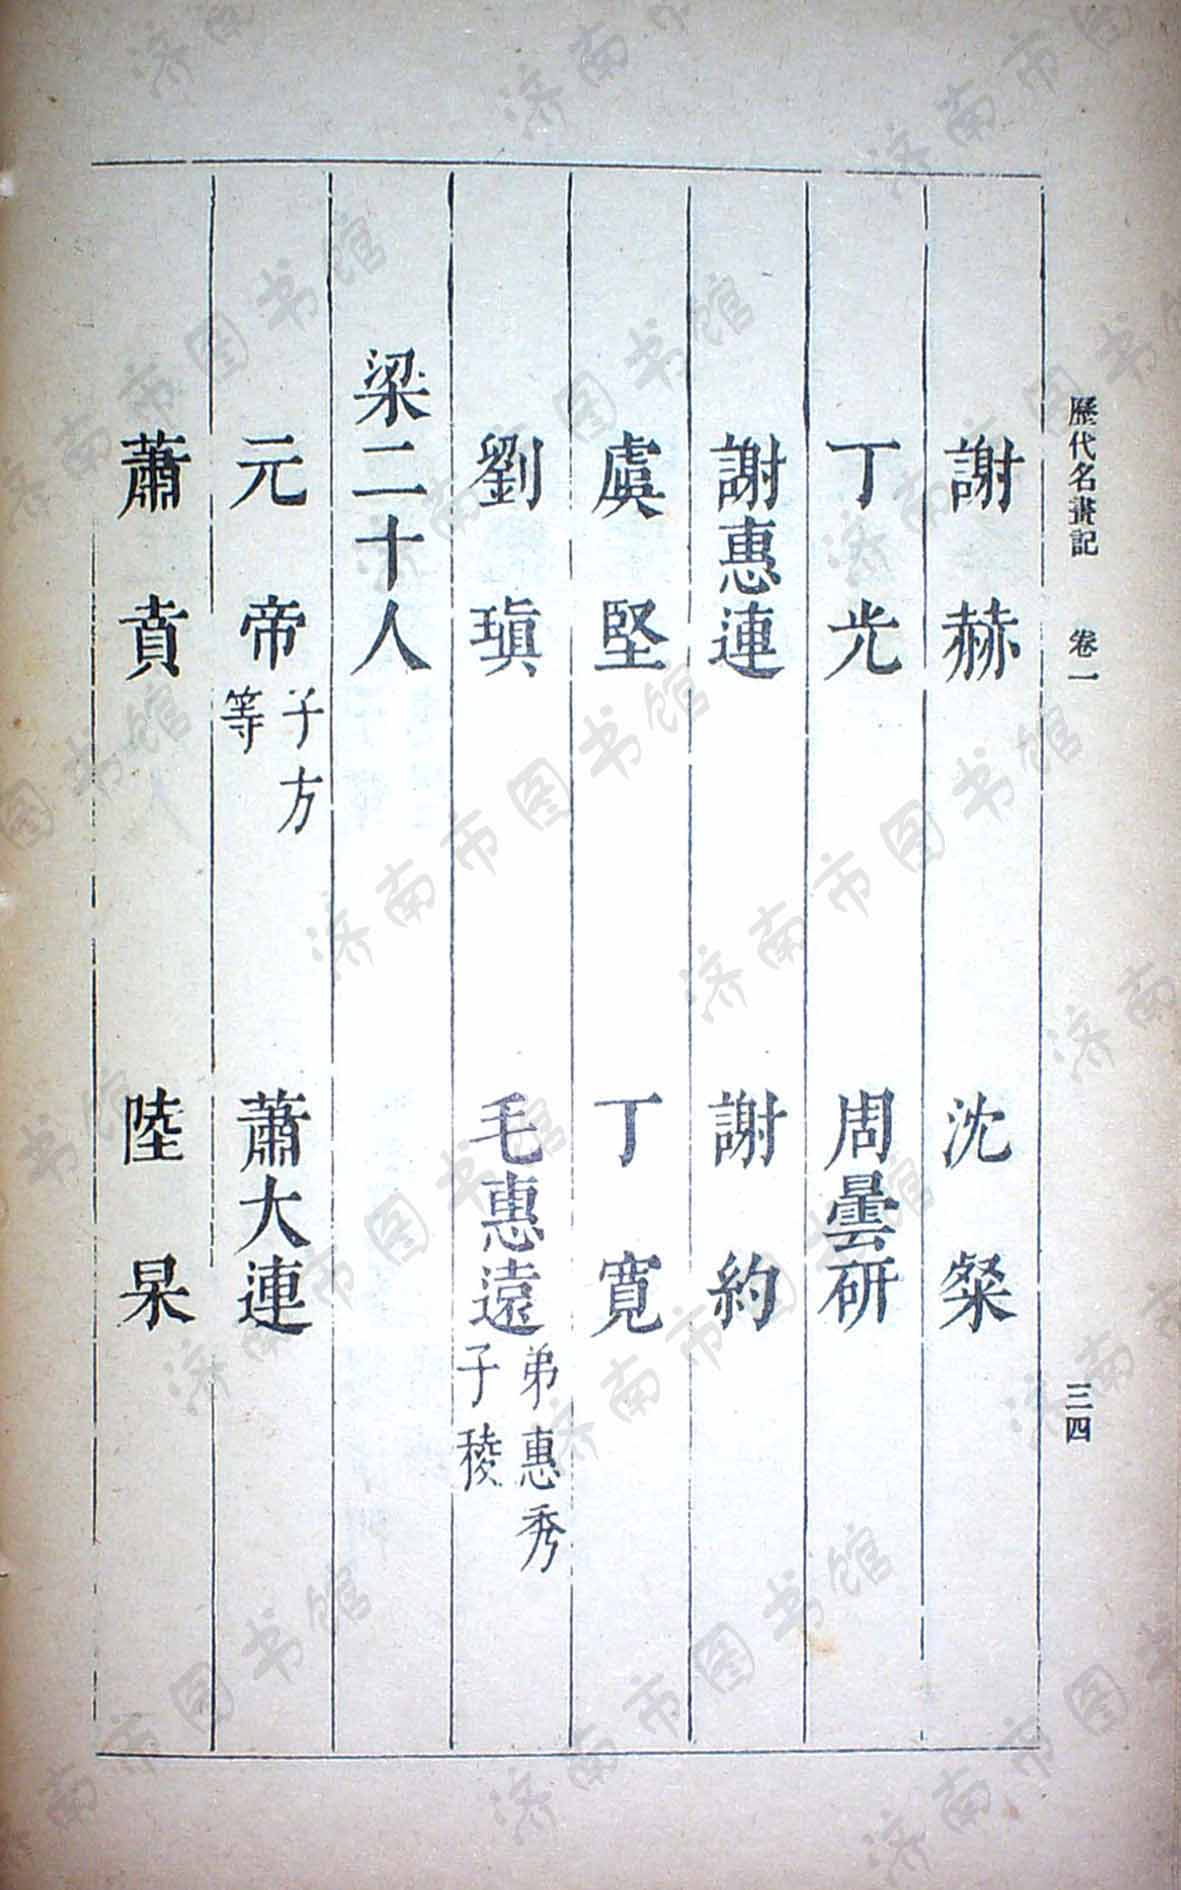 歷代名畫記　卷一　三四
謝赫　沈粲
丁光　周曇研
謝惠連　謝約
虞堅　丁寬
劉瑱　毛惠遠弟惠秀子稜
梁二十人
元帝子方等　蕭大連
蕭賁　陸杲
济南市图书馆